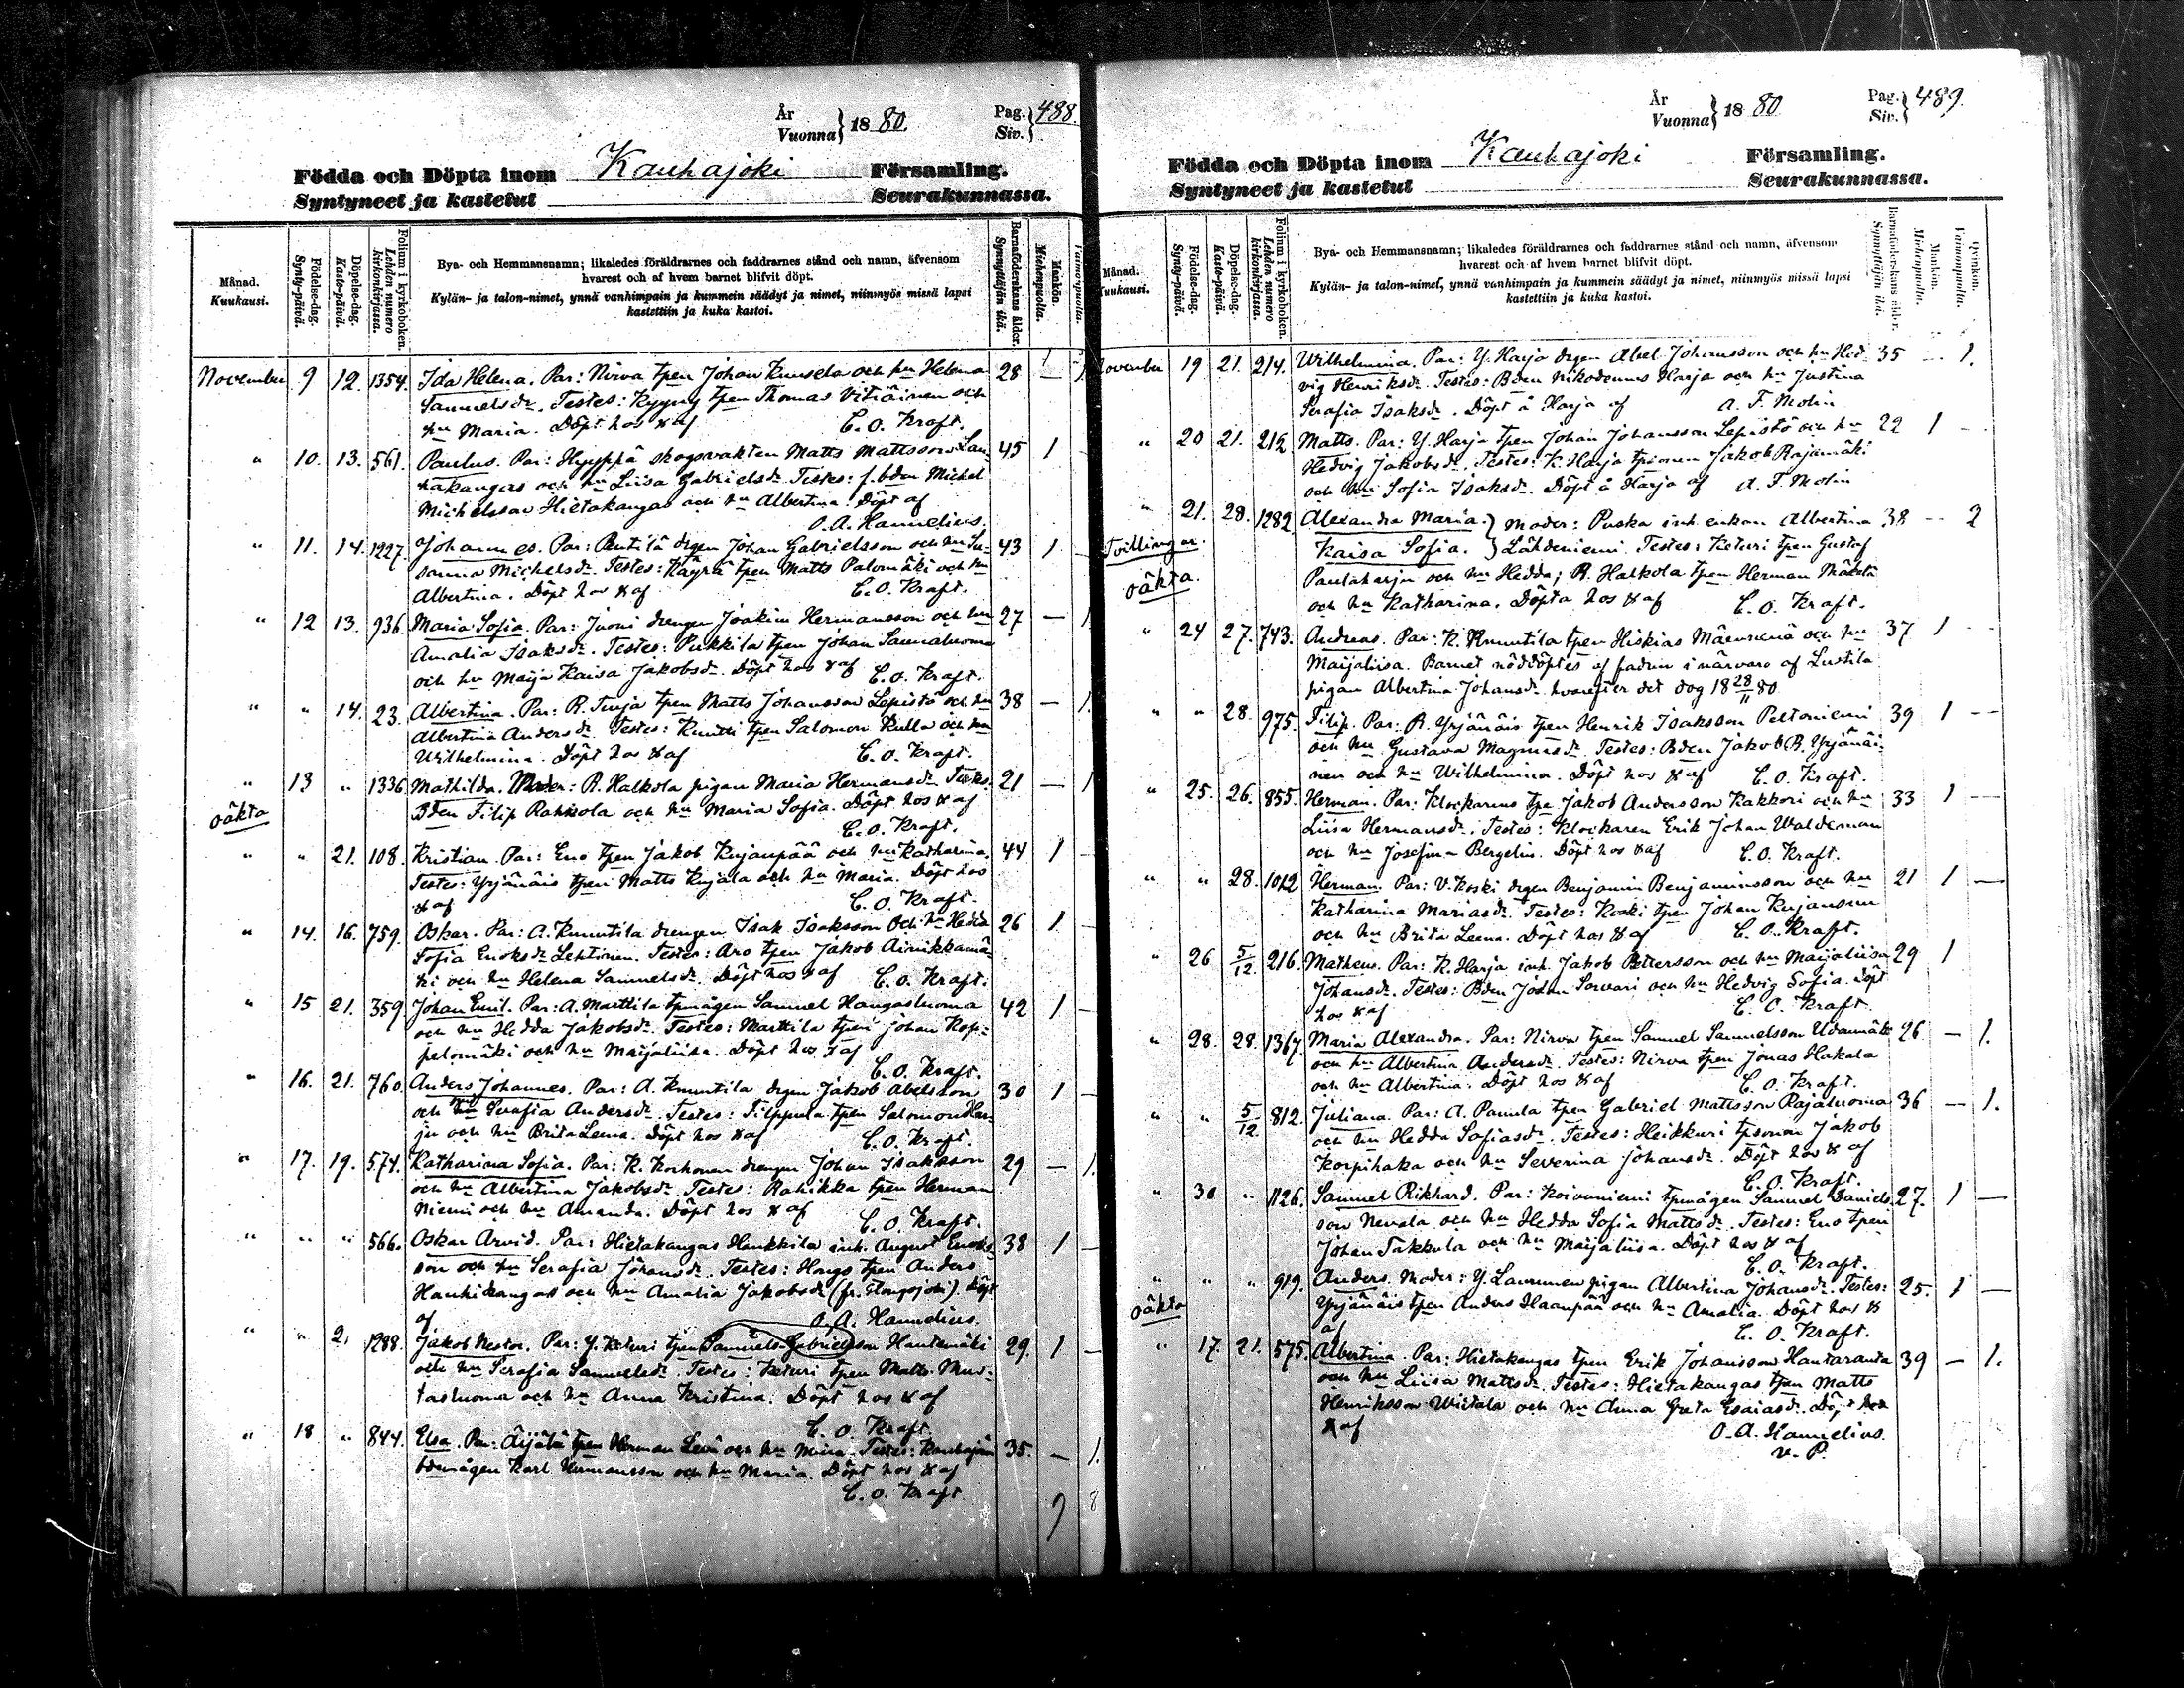 År
Vuonna } 18 80.
Pag.
Siv. } 488.
Födda och Döpta inom Kauhajoki Församling.
Syntyneet ja kastetut Seurakunnassa.
Månad.
Kuukausi.
Födelse-dag.
Synty-päivä.
Döpelse-dag.
Kaste-päivä.
Folium i kyrkoboken.
Lehden numero kirkonkirjassa.
Bya- och Hemmansnamn; likaledes föräldrarnes och faddrarnes stånd och namn, äfvensom
hvarest och af hvem barnet blifvit döpt.
Kylän- ja talon-nimet, ynnä vanhimpain ja kummein säädyt ja nimet, niinmyös missä lapsi
kastettiin ja kuka kastoi.
Barnaföderskans ålder.
Synnyttäjän ikä.
Mankön.
Miehenpuolta.
Vaimonpuolta.
November 9 12. 1354. Ida Helena. Par: Nirva tpen Johan Kuusela och hu Helena 28 — 1.
Samuelsdr. Testes: Kyyny tpen Thomas Vitiäinen och
hu Maria. Döpt hos & af C. O. Kraft.
" 10. 13. 561. Paulus. Par: Hyyppä skogsvakten Matts Mattsson 45 1 —
och hu Liisa Gabrielsdr. Testes: f. bden Michel
Michelsson Hietakangas och hu Albertina. Döpt af
O. A. Hannelius.
" 11. 14. 1227. Johannes. Par: Pentilä drgen Johan Gabrielsson och hu Su- 43 1 —
sanna Michelsdr. Testes: Käyrä tpen Matts Palomäki och hu
Albertina. Döpt hos & af C. O. Kraft.
" 12 13. 936. Maria Sofia. Par: Juoni drengen Joakim Hermansson och hu 27 — 1
Amalia Isaksdr. Testes: Pukkila tpen Johan Sannaluoma
och hu Maija Kaisa Jakobsdr. Döpt hos & af C. O. Kraft.
" " 14. 23. Albertina. Par: R. Turja tpen Matts Johansson Lepistö och hu 38 — 1.
Albertina Andersdr. Testes: tpen Salomon Kulla och hu
Wilhelmina. Döpt hos & af C. O. Kraft.
" 13 " 1336. Mathilda. Moder: R. Halkola pigan Maria Hermansdr. Testes: 21 — 1
oäkta Bden Filip Rahkola och hu Maria Sofia. Döpt hos & af
C. O. Kraft.
" " 21. 108. Kristian. Par: Eno tpen Jakob Kujanpää och hu Katharina. 44 1 —
Testes: Yrjänäis tpen Matts Kujala och hu Maria. Döpt hos
& af C. O. Kraft.
" 14. 16. 759. Oskar. Par: A. Knuutila drengen Isak Isaksson och hu Hedda 26 1 —
Sofia Enoksdr Lehtinen. Testes: Aro tpen Jakob Ainikkamä-
ki och hu Helena Samuelsdr. Döpt hos & af C. O. Kraft.
" 15 21. 359 Johan Emil. Par: A. Marttila tpmågen Samuel Hangasluoma 42 1 —
och hu Hedda Jakobsdr. Testes: Marttila tpen Johan Kop-
pelomäki och hu Maijaliisa. Döpt hos & af
C. O. Kraft.
" 16. 21. 760. Anders Johannes. Par: A. Knuutila drgen Jakob Abelsson 30 1 —
och hu Serafia Andersdr. Testes: Filppula tpen Salomon Har-
ju och hu Brita Leena. Döpt hos & af C. O. Kraft.
" 17. 19. 574. Katharina Sofia. Par: K. Korhonen drengen Johan Isaksson 29 — 1.
och hu Albertina Jakobsdr. Testes: Rahikka tpen Herman
Niemi och hu Amanda. Döpt hos & af C. O. Kraft.
" " " 566. Oskar Arvid. Par: Hietakangas Hankkila inh. August Enoks- 38 1 —
son och hu Serafia Johansdr. Testes: Hongo tpen Anders
Hauhikangas och hu Amalia Jakobsdr (fr. Hongojoki). Döpt
af O. A. Hannelius.
" " 2. 1288. Jakob Nestor. Par: Y. Keturi tpen Samuel Gabrielsson Hautamäki 29. 1 —
och hu Serafia Samuelsdr. Testes: Keturi tpen Matts Mus-
tasluoma och hu Anna Kristina. Döpt hos & af
C. O. Kraft.
" 18 " 844. Elsa. Par: Äijälä tpen Herman Levä och hu Maria. Testes: Kauhajärvi 35. — 1.
bdemågen Karl Hermansson och hu Maria. Döpt hos & af
C. O. Kraft
9 8
År
Vuonna } 18 80
Pag.
Siv. } 489.
Födda och Döpta inom Kauhajoki Församling.
Syntyneet ja kastetut Seurakunnassa.
Månad.
Kuukausi.
Födelse-dag.
Synty-päivä.
Döpelse-dag.
Kaste-päivä.
Folium i kyrkoboken.
Lehden numero kirkonkirjassa.
Bya- och Hemmansnamn; likaledes föräldrarnes och faddrarnes stånd och namn, äfvensom
hvarest och af hvem barnet blifvit döpt.
Kylän- ja talon-nimet, ynnä vanhimpain ja kummein säädyt ja nimet, niinmyös missä lapsi
kastettiin ja kuka kastoi.
Barnaföderskans ålder.
Synnyttäjän ikä.
Mankön.
Miehenpuolta.
Qvinkön.
Vaimonpuolta.
November 19 21. 214. Wilhelmina. Par: Y. Harja drgen Abel Johansson och hu Hed- 35 — 1.
vig Henriksdr. Testes: Bden Nikodemus Harja och hu Justina
Serafia Isaksdr. Döpt å Harja af A. F. Molin
" 20 21. 212 Matts. Par: Y. Harja tpen Johan Johansson Lepistö och hu 22 1 —
Hedvig Jakobsdr. Testes: K. Harja tpsonen Jakob Rajamäki
och hu Sofia Isaksdr. Döpt å Harja af A. F. Molin
" 21. 28. 1282 Alexandra Maria. } Moder: Puska inh. enkan Albertina 38 — 2
Tvillingar. Kaisa Sofia. } Lähdeniemi. Testes: Keturi tpen Gustaf
oäkta. Pantaharju och hu Hedda; R. Halkola tpen Herman Mäkelä
och hu Katharina. Döpta hos & af C. O. Kraft.
" 24 27. 743. Andreas. Par: K. Knuutila tpen Hiskias Mäenpää och hu 37 1 —
Maijaliisa. Barnet nöddöptes af fadren i närvaro af Lustila
pigan Albertina Johansdr. hvarefter det dog 18 28/11 80
" " 28. 975. Filip. Par: R. Yrjänäis tpen Henrik Isaksson Peltoniemi 39 1 —
och hu Gustava Magnusdr. Testes: Bden Jakob R. Yrjänäi-
nen och hu Wilhelmina. Döpt hos & af C. O. Kraft.
" 25. 26. 855. Herman. Par: Klockarens tpe Jakob Andersson Kakkori och hu 33 1 —
Liisa Hermansdr. Testes: Klockaren Erik Johan Waldeman
och hu Josefina Bergelin. Döpt hos & af C. O. Kraft.
" " 28. 1012 Herman. Par: V. Koski drgen Benjamin Benjaminsson och hu 21 1 —
Katharina Mariasdr. Testes: Koski tpen Johan Kujansuu
och hu Brita Leena. Döpt hos & af C. O. Kraft.
" 26 5/12. 216. Matheus. Par: K. Harja inh. Jakob Pettersson och hu Maijaliisa 29 1
Johansdr. Testes: Bden Johan Sorvari och hu Hedvig Sofia. Döpt
hos & af C. O. Kraft.
" 28. 28. 1367. Maria Alexandra. Par: Nirva tpen Samuel Samuelsson 26 — 1.
och hu Albertina Andersdr. Testes: Nirva tpen Jonas Hakala
och hu Albertina. Döpt hos & af C. O. Kraft.
" " 5/12 812. Juliana. Par: A. Panula tpen Gabriel Mattsson Rajaluoma 36 — 1.
och hu Hedda Sofiasdr. Testes: Heikkuri tpsonen Jakob
Korpihaka och hu Severina Johansdr. Döpt hos & af
C. O. Kraft.
" 30 " 1126. Samuel Rikhard. Par: Koivuniemi tpmågen Samuel Daniels- 27. 1 —
son Nevala och hu Hedda Sofia Mattsdr. Testes: Eno tpen
Johan Takkula och hu Maijaliisa. Döpt hos & af
C. O. Kraft.
" " " 919. Anders. Moder: Y. Laurunen pigan Albertina Johansdr. Testes: 25. 1 —
oäkta Yrjänäis tpen Anders Haanpää och hu Amalia. Döpt hos &
af C. O. Kraft.
" 17. 21. 575. Albertina. Par: Hietakangas tpen Erik Johansson Hautaranta 39 — 1.
och hu Liisa Mattsdr. Testes: Hietakangas tpen Matts
Henriksson Wiitala och hu Anna Greta Esaiasdr. Döpt hos
& af O. A. Hannelius.
v. P.